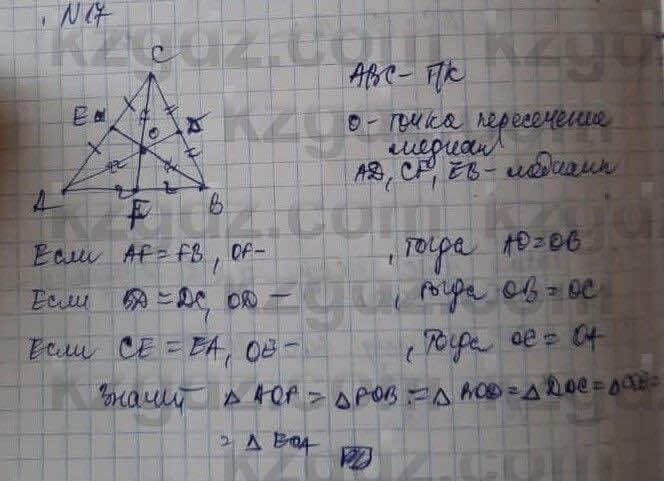 N17
C
E
D
O
A
F
B
ABC - ПК
O - точка пересечение
медиан
AD, CF, EB - медианы
Если AF = FB, OF - , тогда AO = OB
Если BD = DC, OD - , тогда OB = OC
Если CE = EA, OE - , тогда OC = OA
Значит △AOF = △FOB = △BOD = △DOC = △COE =
= △EOA
kzgdz.com